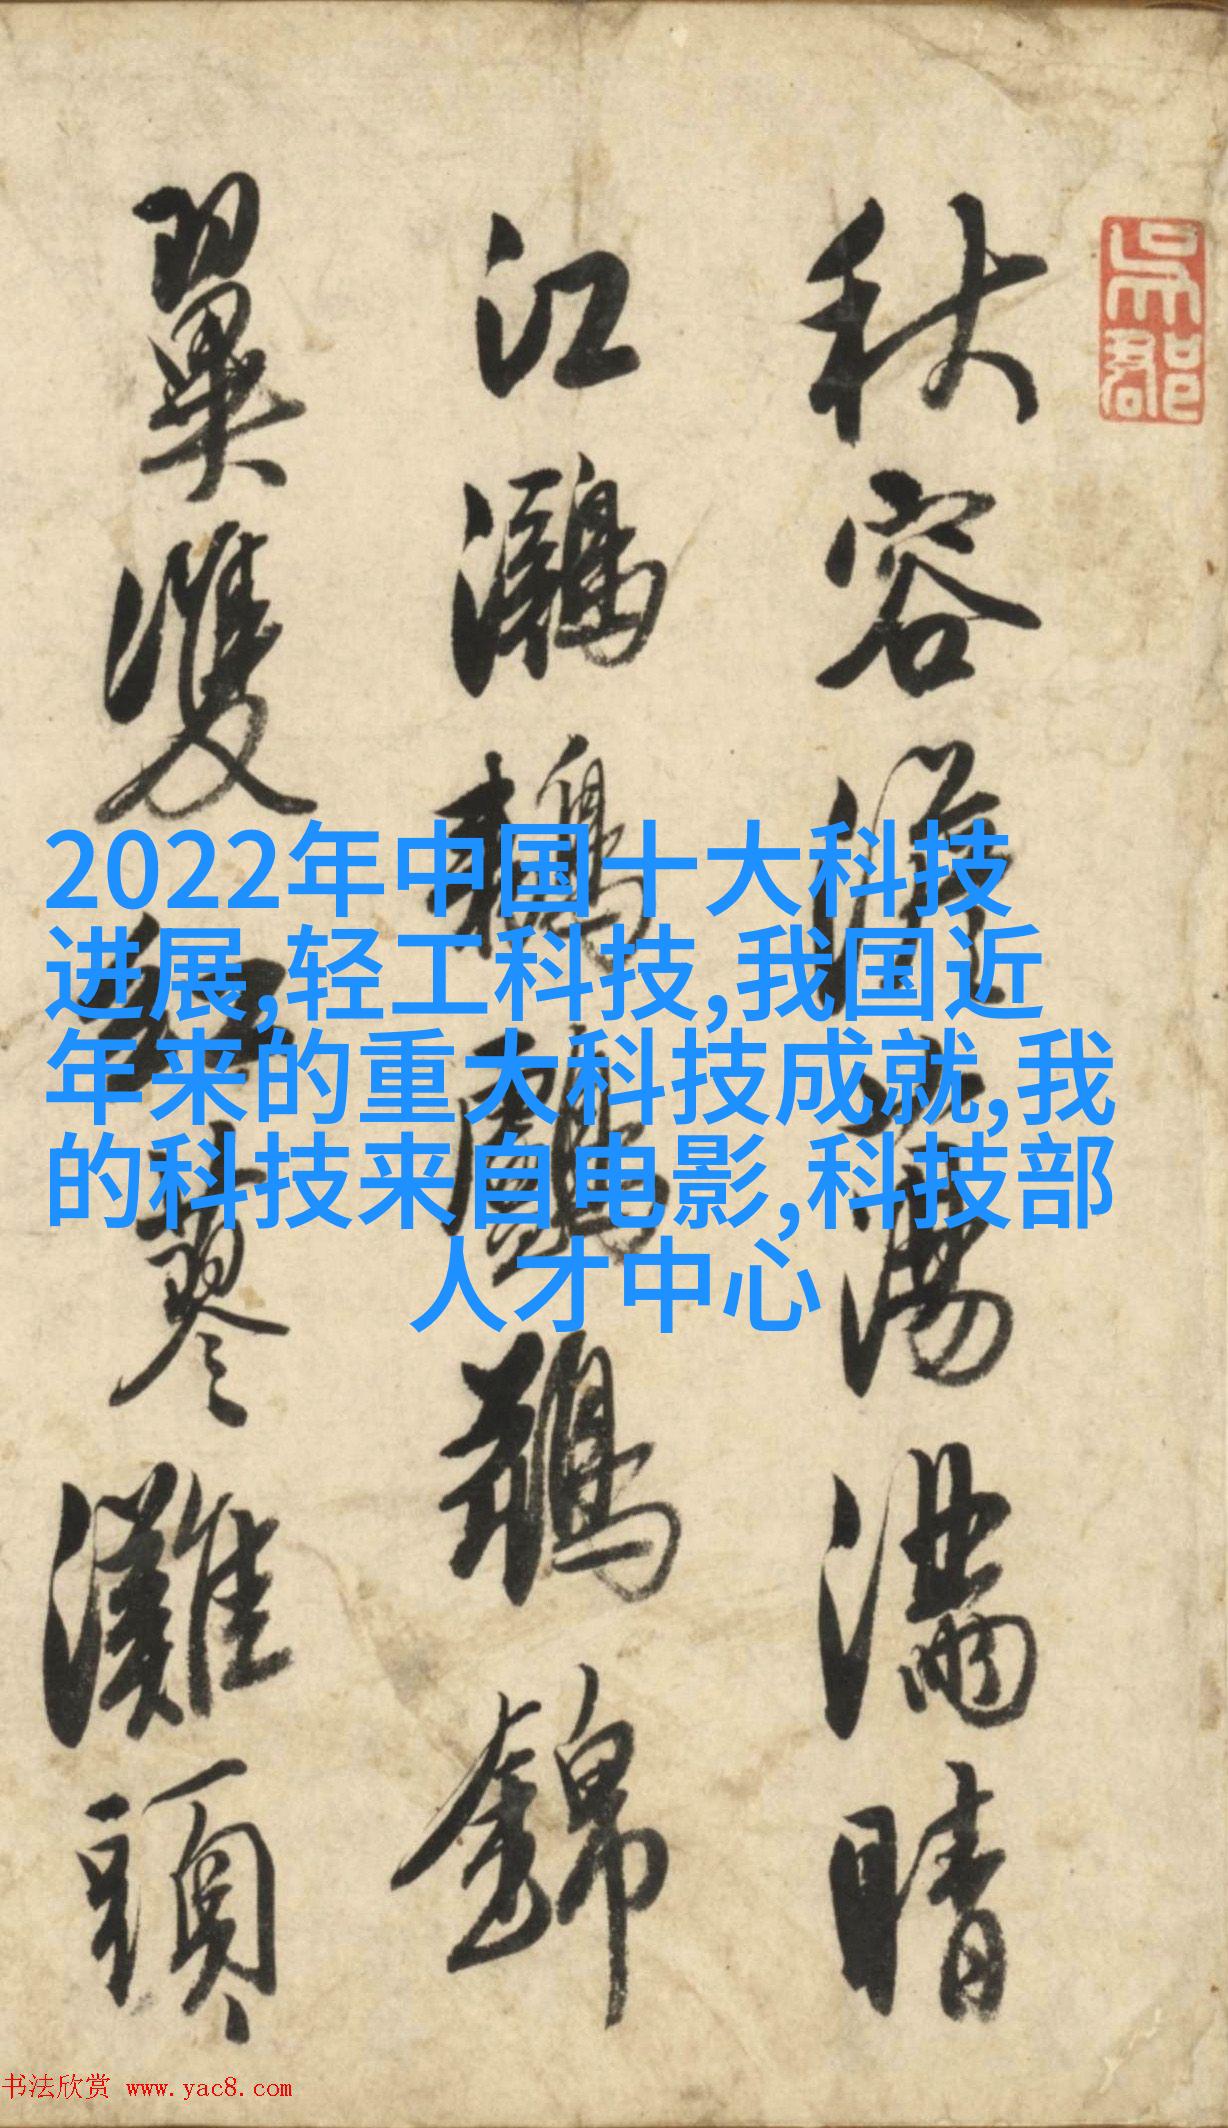 吳郡
秋容蕩滿晴
江鸂鶒鸕鶿錦
翼雙紅蓼灘頭
2022年中国十大科技
进展,轻工科技,我国近
年来的重大科技成就,我
的科技来自电影,科技部
人才中心
书法欣赏 www.yac8.com